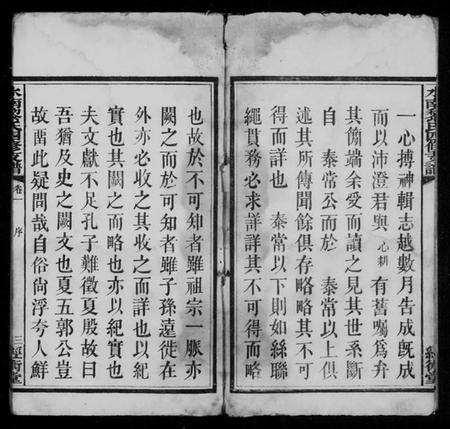 一心摶神輯志越數月告成旣成
而以沛澄君與心耕有舊囑爲弁
其俯端余受而讀之見其世系斷
自 秦常公而於 秦常以上俱
述其所傳聞餘俱存略略其不可
得而詳也 秦常以下則如絲聯
繩貫務必求詳詳其不可得而略
也故於不可知者雖祖宗一脈亦
闕之而於可知者雖子孫遠徙在
外亦必收之其收之而詳也以紀
實也其闕之而略也亦以紀實也
夫文獻不足孔子難徵夏殷故曰
吾猶及史之闕文也夏五郭公豈
故凿此疑問哉自俗尙浮夸人鮮
四修支譜
卷一
序
三
經術堂